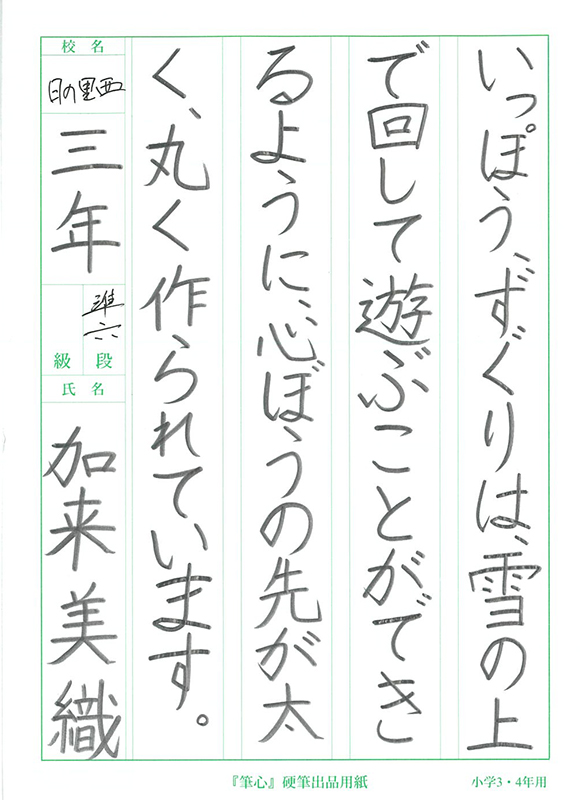 いっぽう、ずぐりは、雪の上
で回して遊ぶことができ
るように、心ぼうの先が太
く、丸く作られています。
校名
日の里西
三年
準六
級段
氏名
加来美織
『筆心』硬筆出品用紙
小学3・4年用